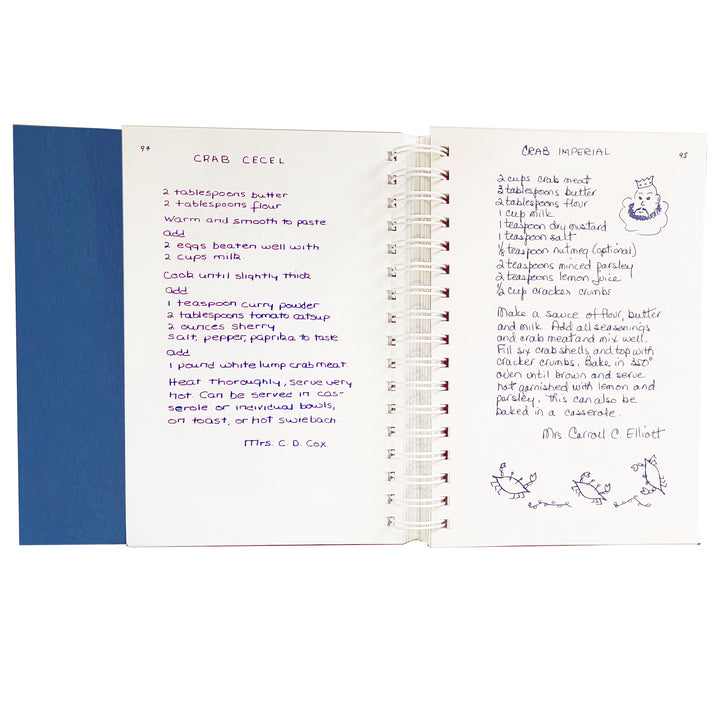 94
CRAB CECEL
2 tablespoons butter
2 tablespoons flour
Warm and smooth to paste.
add
2 eggs beaten well with
2 cups milk.
Cook until slightly thick
add
1 teaspoon curry powder
2 tablespoons tomato catsup
2 ounces sherry
salt, pepper, paprika to taste
add
1 pound white lump crabmeat.
Heat thoroughly, serve very
hot. Can be served in cas-
serole or individual bowls,
on toast, or hot swiebach.
Mrs. C. D. Cox.
CRAB IMPERIAL
95
2 cups crab meat
3 tablespoons butter
2 tablespoons flour
1 cup milk
1 teaspoon dry mustard
1 teaspoon salt
1/8 teaspoon nutmeg (optional)
2 teaspoons minced parsley
2 teaspoons lemon juice
1/2 cup cracker crumbs
Make a sauce of flour, butter
and milk. Add all seasonings
and crab meat and mix well.
Fill six crab shells and top with
cracker crumbs. Bake in 350°
oven until brown and serve
hot garnished with lemon and
parsley. This can also be
baked in a casserole.
Mrs Carroll C. Elliott